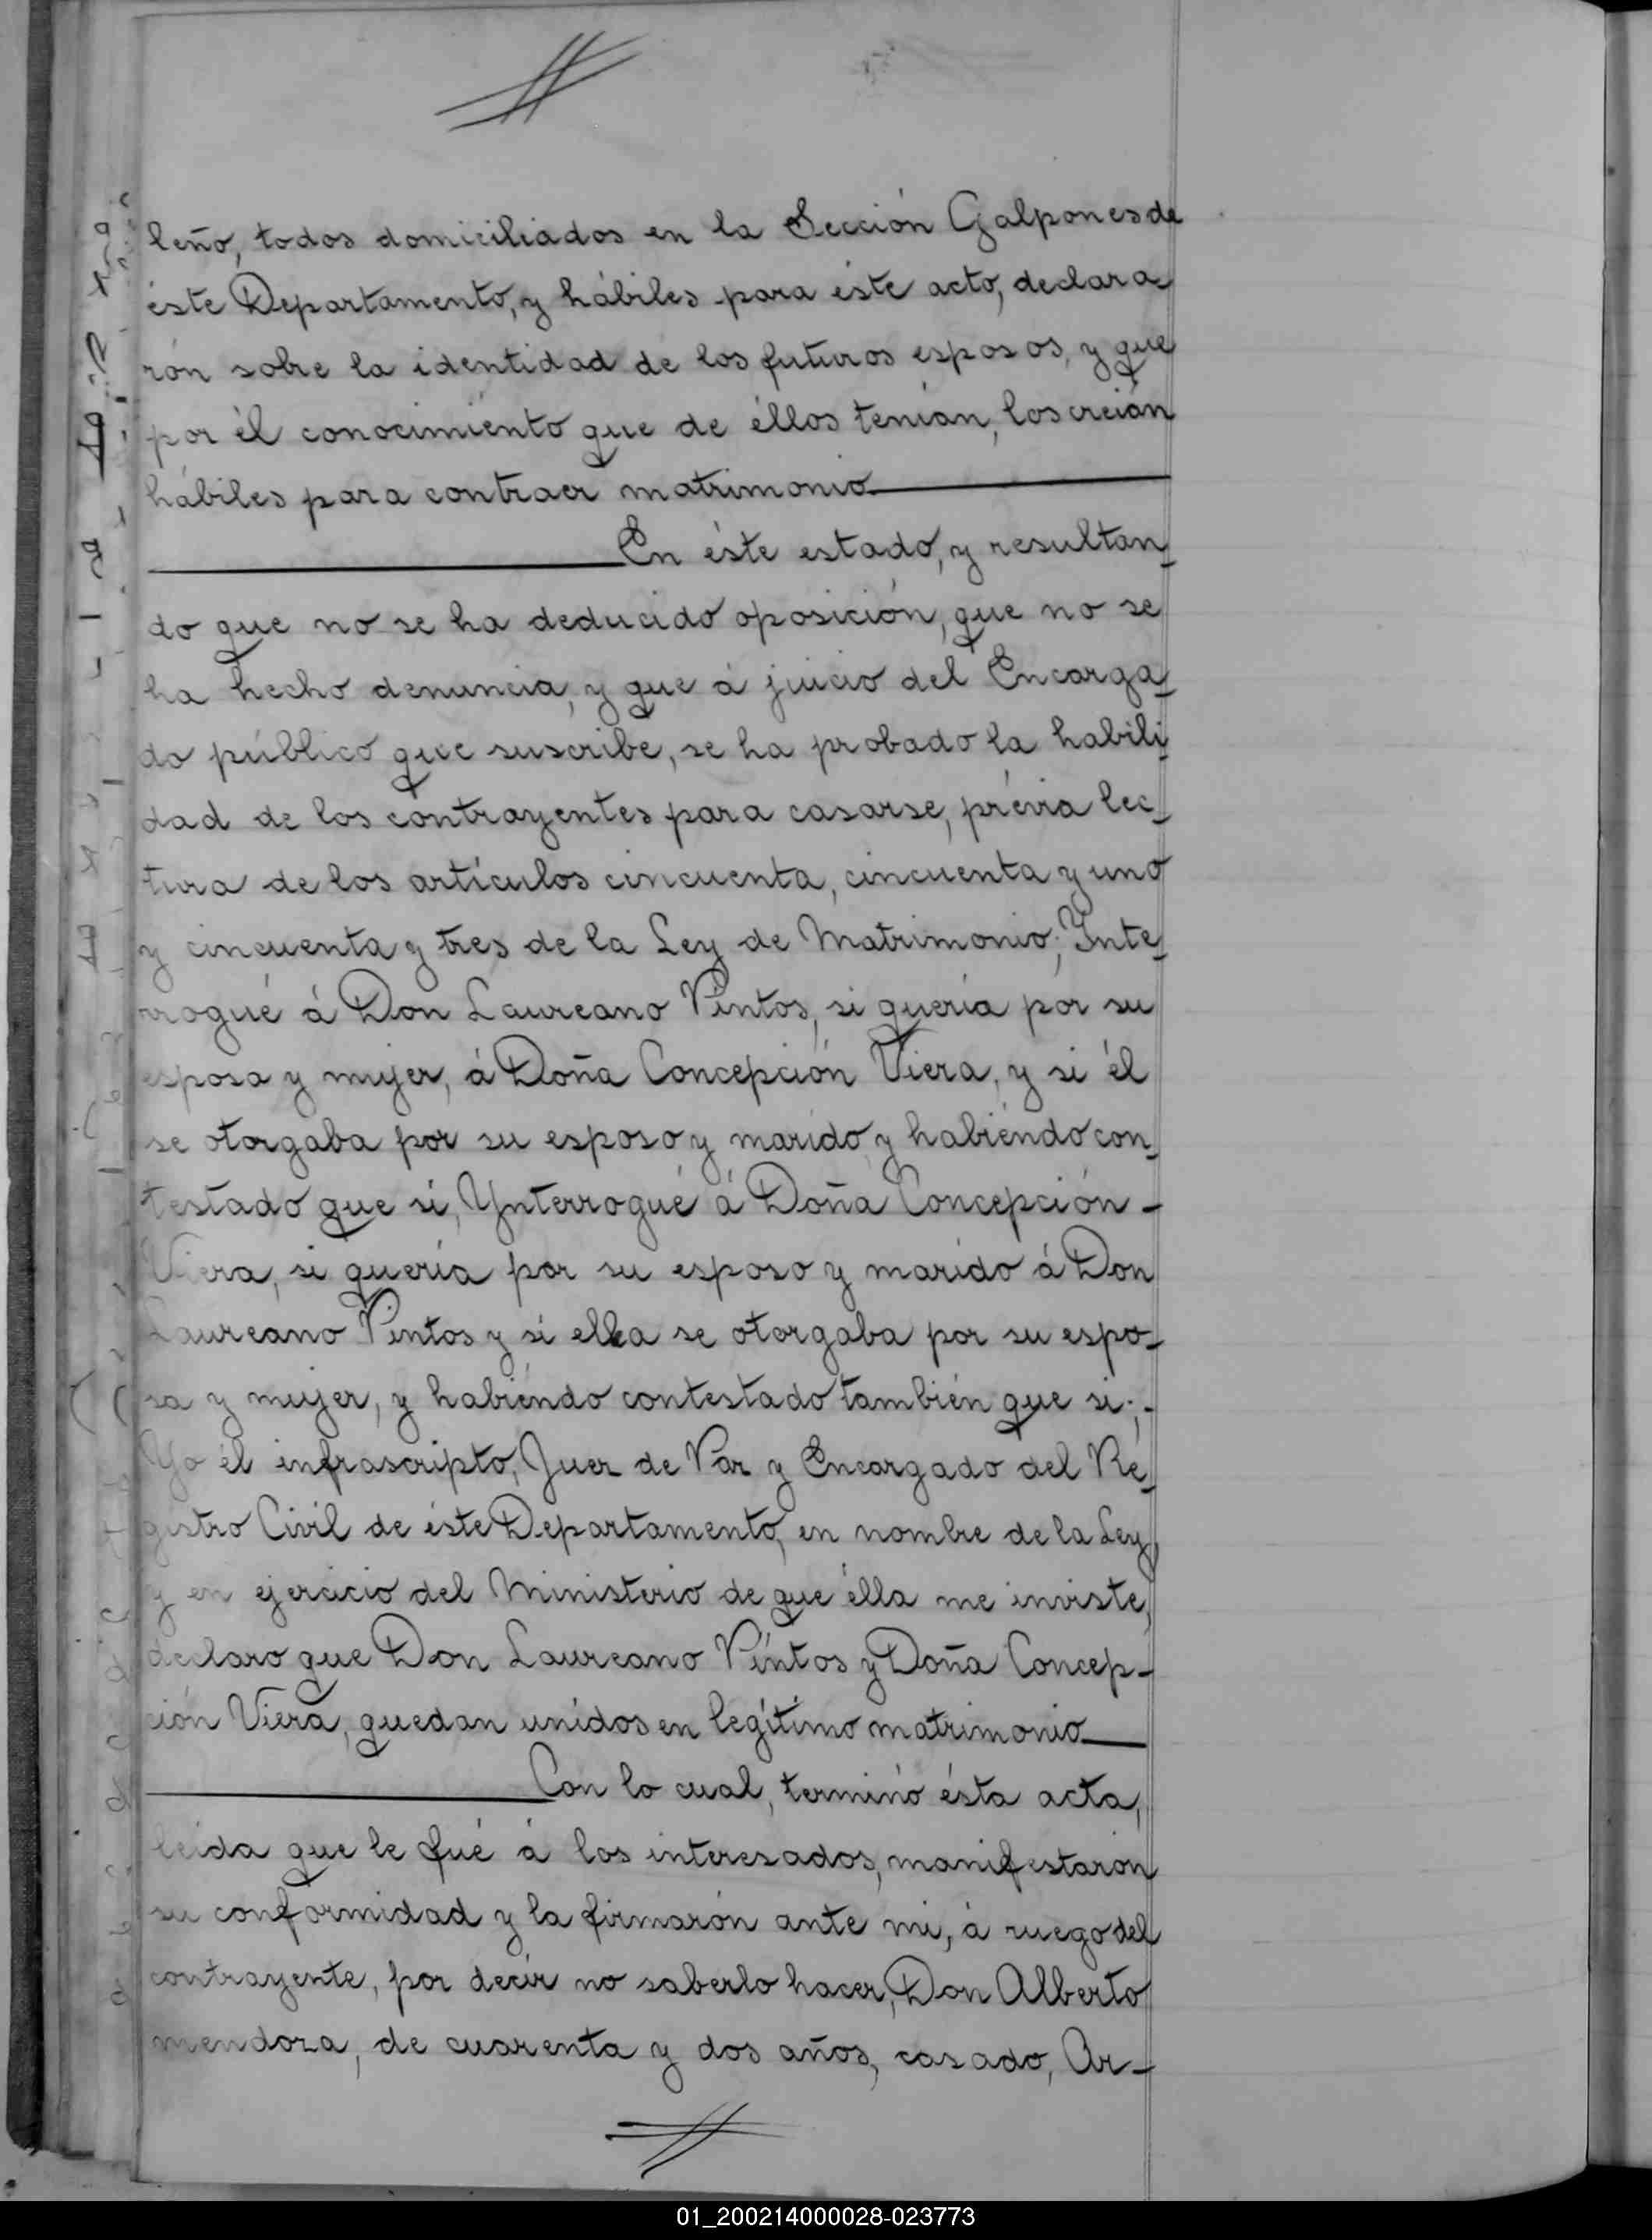 leño, todos domiciliados en la Sección Galpones de
éste Departamento, y hábiles para éste acto, declara
rón sobre la identidad de los futuros esposos, y que
por él conocimiento que de éllos tenían, los creían
hábiles para contraer matrimonio
En éste estado, y resultan
do que no se ha deducido oposición, que no se
ha hecho denuncia, y que á juicio del Encarga
do público que suscribe, se ha probado la habili
dad de los contrayentes para casarse, prévia lec
tura de los artículos cincuenta, cincuenta y uno
y cincuenta y tres de la Ley de Matrimonio; Ynte
rrogué á Don Laureano Pintos, si quería por su
esposa y mujer, á Doña Concepción Viera, y si él
se otorgaba por su esposo y marido y habiéndo con
testado que si, Ynterrogué á Doña Concepción -
Viera, si quería por su esposo y marido á Don
Laureano Pintos y si ella se otorgaba por su espo-
sa y mujer, y habiéndo contestado también que si;-
Yo él infrascripto, Juez de Paz y Encargado del Re
gistro Civil de éste Departamento, en nombre de la Ley
y en ejercicio del Ministerio de que élla me inviste,
declaro que Don Laureano Pintos y Doña Concep-
ción Viera, quedan unidos en legítimo matrimonio
Con lo cual, terminó ésta acta,
leída que le fué á los interesados, manifestarón
su conformidad y la firmarón ante mi, á ruego del
contrayente, por decir no saberlo hacer, Don Alberto
mendoza, de cuarenta y dos años, casado, Ar-
01_200214000028-023773